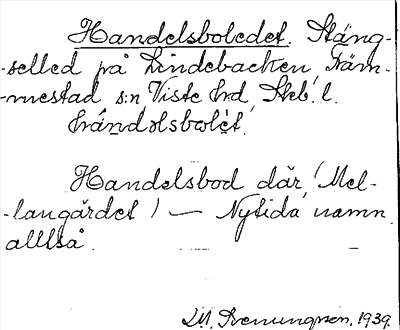 Handelsboledet. Stäng-
-selled på Lindebacken, Främ-
-mestad s:n Viste hrd, Skb. l.
hánd
Handelsbod där (Mel-
-langärdet) — Nytida namn
alltså.
M. Svenungsson, 1939.